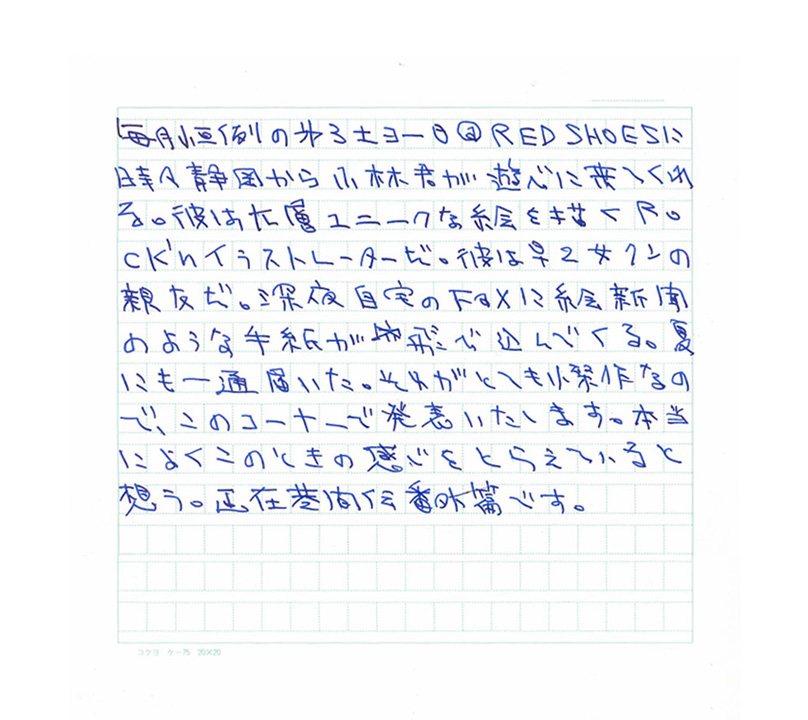 毎月恒例の第3土ヨー日@RED SHOESに
時々静岡から小林君が遊びに来てくれ
る。彼は大層ユニークな絵を描くRO
CK'nイラストレーターだ。彼は早乙女クンの
親友だ。深夜自宅のFAXに絵新聞
のような手紙が飛び込んでくる。夏
にも一通届いた。それがとても小傑作なの
で、このコーナーで発表いたします。本当
によくこのときの感じをとらえていると
想う。正在巷間伝番外篇です。
コクヨ ケ-75 20×20